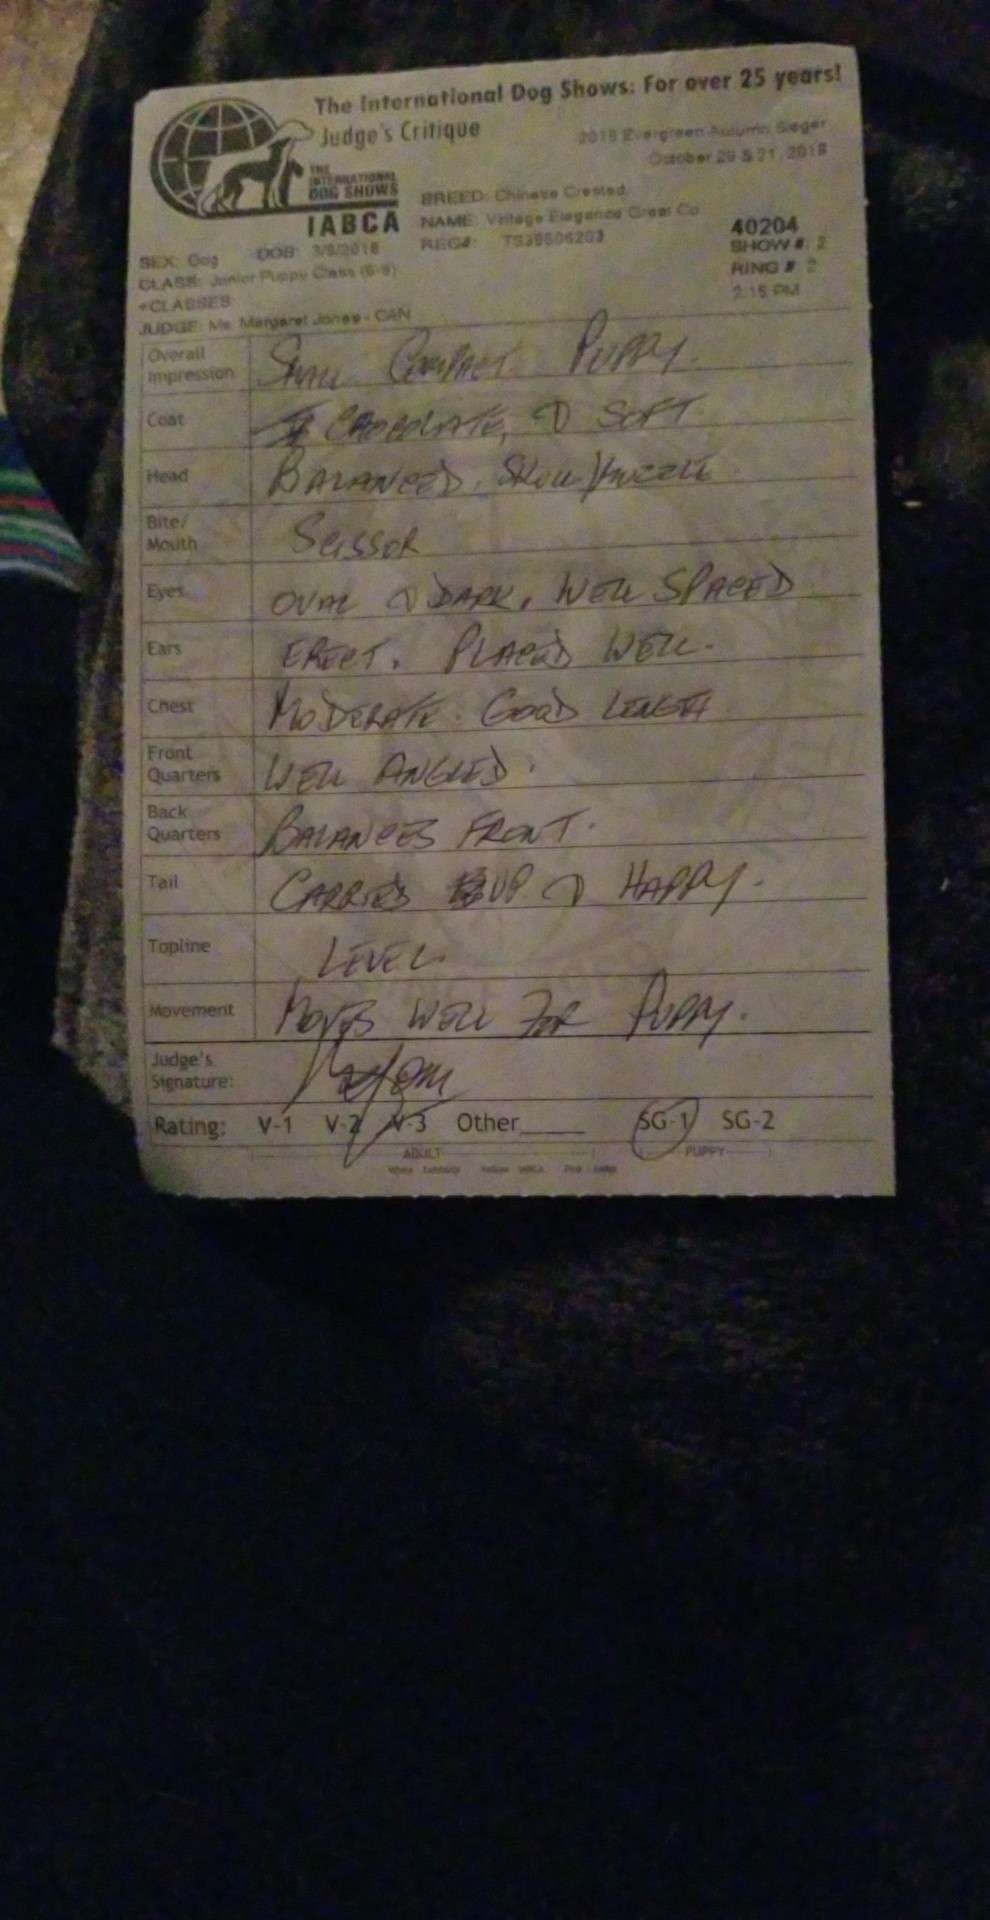 The International Dog Shows: For over 25 years!
Judge's Critique
2018 Evergreen Autumn Sieger
October 20 & 21, 2018
THE
INTERNATIONAL
DOG SHOWS
IABCA
BREED: Chinese Crested
NAME: Vintage Elegance Great Co
REG#: TS39506203
40204
SHOW #: 2
RING #: 2
2:15 PM
SEX: Dog DOB: 3/9/2018
CLASS: Junior Puppy Class (6-9)
+CLASSES
JUDGE: Ms. Margaret Jones - CAN
Overall Impression SMALL COMPACT PUPPY.
Coat CHOCOLATE, SOFT
Head BALANCED. SKULL/MUZZLE
Bite/Mouth SCISSOR
Eyes OVAL DARK, WELL SPACED
Ears ERECT. PLACED WELL.
Chest MODERATE. GOOD LENGTH
Front Quarters WELL ANGLED.
Back Quarters BALANCES FRONT.
Tail CARRIED UP HAPPY.
Topline LEVEL.
Movement MOVES WELL FOR PUPPY.
Judge's Signature:
Rating: V-1 V-2 V-3 Other____ SG-1 SG-2
ADULT PUPPY